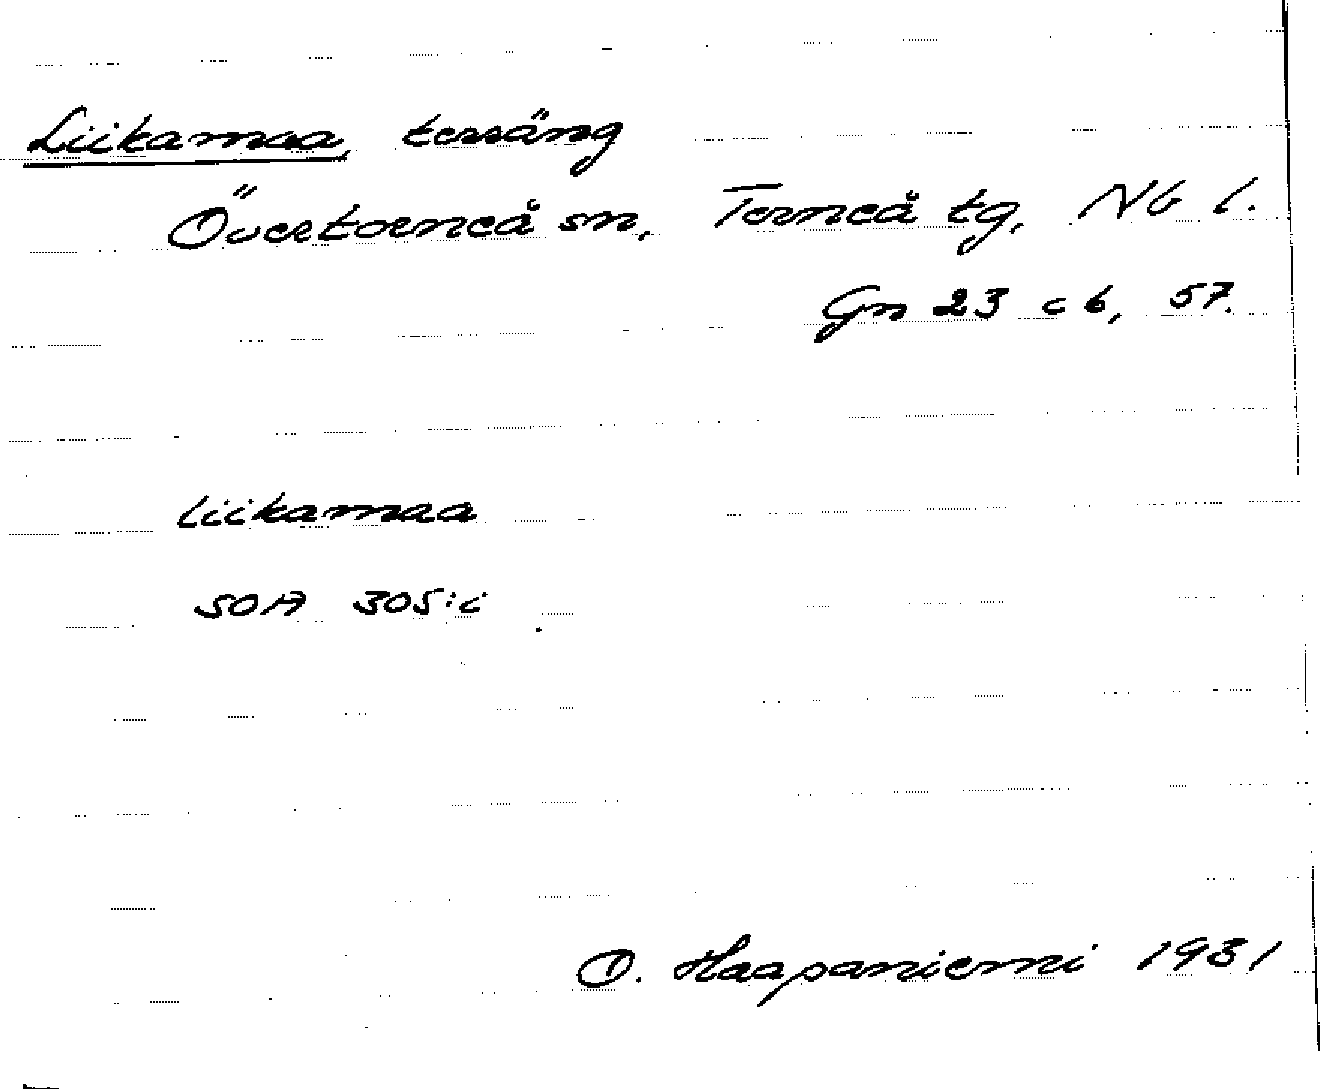 Liikamaa, terräng
Övertorneå sn, Torneå tg, Nb l.
Gn 23 c 6, 57.
liikamaa
SOA 305:i
O. Haapaniemi 1931